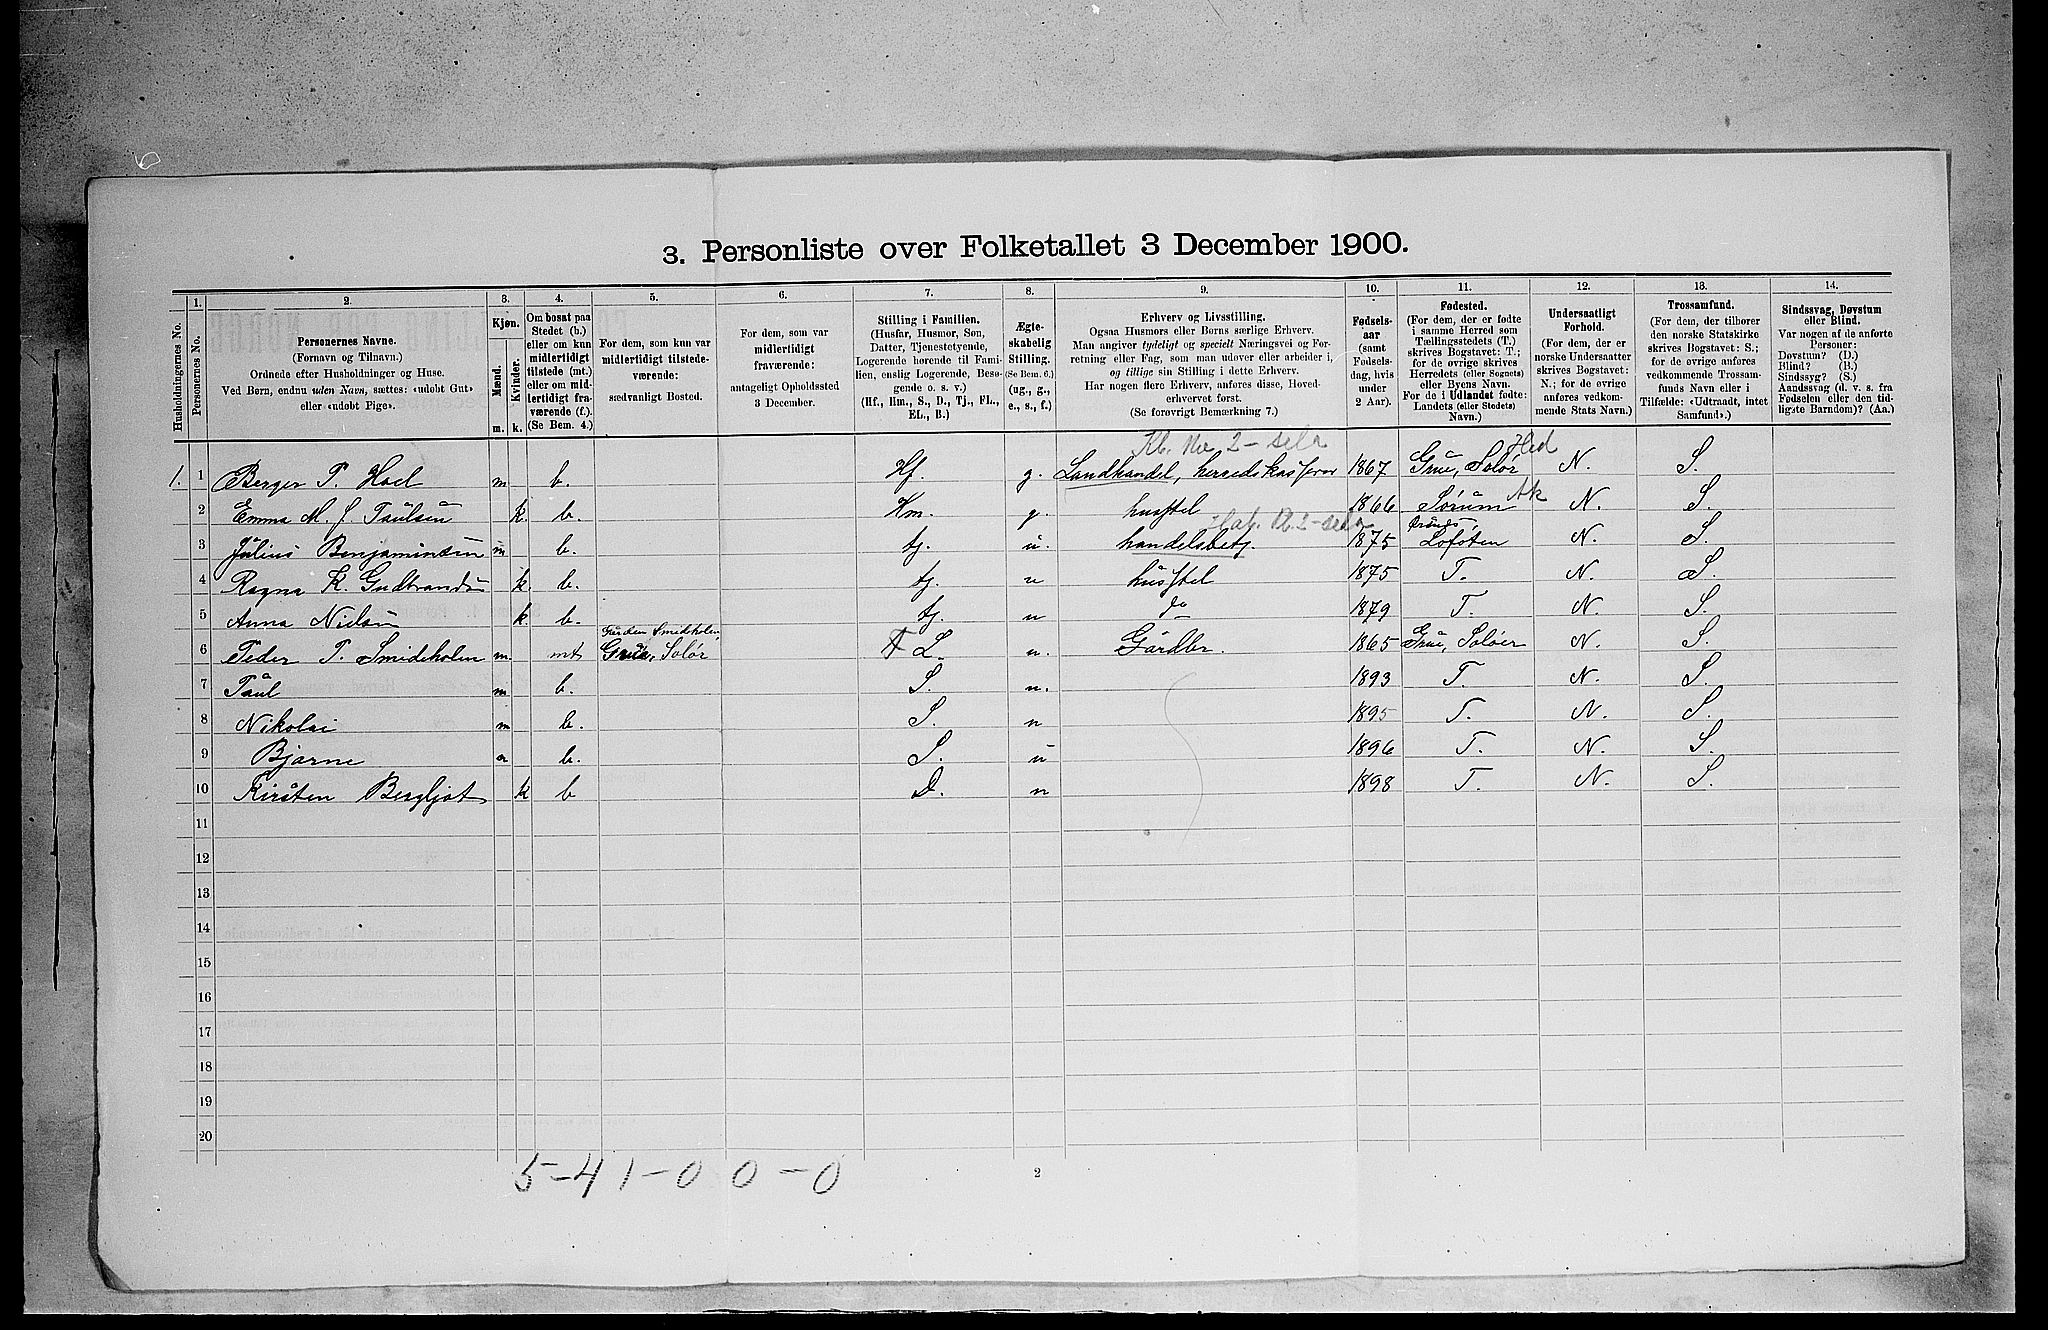 3. Personliste over Folketallet 3 December 1900.
Husholdningernes No.
1.
Personernes No.
2.
Personernes Navne.
(Fornavn og Tilnavn.)
Ordnede efter Husholdninger og Huse.
Ved Børn, endnu uden Navn, sættes: «udøbt Gut»
eller «udøbt Pige».
3.
Kjøn.
Mænd.
Kvinder.
m. k.
4.
Om bosat paa
Stedet (b.)
eller om kun
midlertidigt
tilstede (mt.)
eller om mid-
lertidigt fra-
værende (f.).
(Se Bem. 4.)
5.
For dem, som kun var
midlertidigt tilstede-
værende:
sædvanligt Bosted.
6.
For dem, som var
midlertidigt
fraværende:
antageligt Opholdssted
3 December.
7.
Stilling i Familien.
(Husfar, Husmor, Søn,
Datter, Tjenestetyende,
Logerende hørende til Fami-
lien, enslig Logerende, Besø-
gende o. s. v.)
(Hf., Hm., S., D., Tj., FL.,
EL., B.)
8.
Ægte-
skabelig
Stilling.
(Se Bem. 6.)
(ug., g.,
e., s., f.)
9.
Erhverv og Livsstilling.
Ogsaa Husmors eller Børns særlige Erhverv.
Man angiver tydeligt og specielt Næringsvei og For-
retning eller Fag, som man udøver eller arbeider i,
og tillige sin Stilling i dette Erhverv.
Har nogen flere Erhverv, anføres disse, Hoved-
erhvervet først.
(Se forøvrigt Bemærkning 7.)
10.
Fødsels-
aar
(samt
Fødsels-
dag, hvis
under
2 Aar).
11.
Fødested.
(For dem, der er fødte
i samme Herred som
Tællingsstedets (T.)
skrives Bogstavet: T.;
for de øvrige skrives
Herredets (eller Sognets)
eller Byens Navn.
For de i Udlandet fødte:
Landets (eller Stedets)
Navn.)
12.
Undersaatligt
Forhold.
(For dem, der er
norske Undersaatter
skrives Bogstavet:
N.; for de øvrige
anføres vedkom-
mende Stats Navn.)
13.
Trossamfund.
(For dem, der tilhører
den norske Statskirke
skrives Bogstavet: S.;
for de øvrige anføres
vedkommende Trossam-
funds Navn eller i
Tilfælde: «Udtraadt, intet
Samfund».)
14.
Sindssvag, Døvstum
eller Blind.
Var nogen af de anførte
Personer:
Døvstum? (D.)
Blind? (B.)
Sindssyg? (S.)
Aandssvag (d. v. s. fra
Fødselen eller den tid-
ligste Barndom)? (Aa.)
Hed
1. 1 Berger P. Hoel m b. Hf. g. Landhandel, herredskasserer 1867 Grue, Solør N. S.
Ak
2 Emma M. J. Paulsen k. b. Hm. g. husstel 1866 Sørum N. S.
3 Julius Benjaminsen m b. tj. u. handelsbetj. 1875 Lofoten N. S.
4 Ragna K. Gudbrandsn k. b. tj. u husstel 1875 T. N. S.
5 Anna Nielsen k. b. tj. u do 1879 T. N. S.
Gaarden Smidsholen,
6 Peder P. Smidsholen m. mt Grue, Solør L. u. Gårdbr. 1865 Grue, Soløer N. S.
7 Paul m b. S. u. 1893 T. N. S.
8 Nikolai m b. S. u 1895 T. N. S.
9 Bjarne m b. S. u 1896 T. N. S.
10 Kirsten Bergljot k b D. u 1898 T. N. S.
11
12
13
14
15
16
17
18
19
20
5-4 1-0 0-0
2